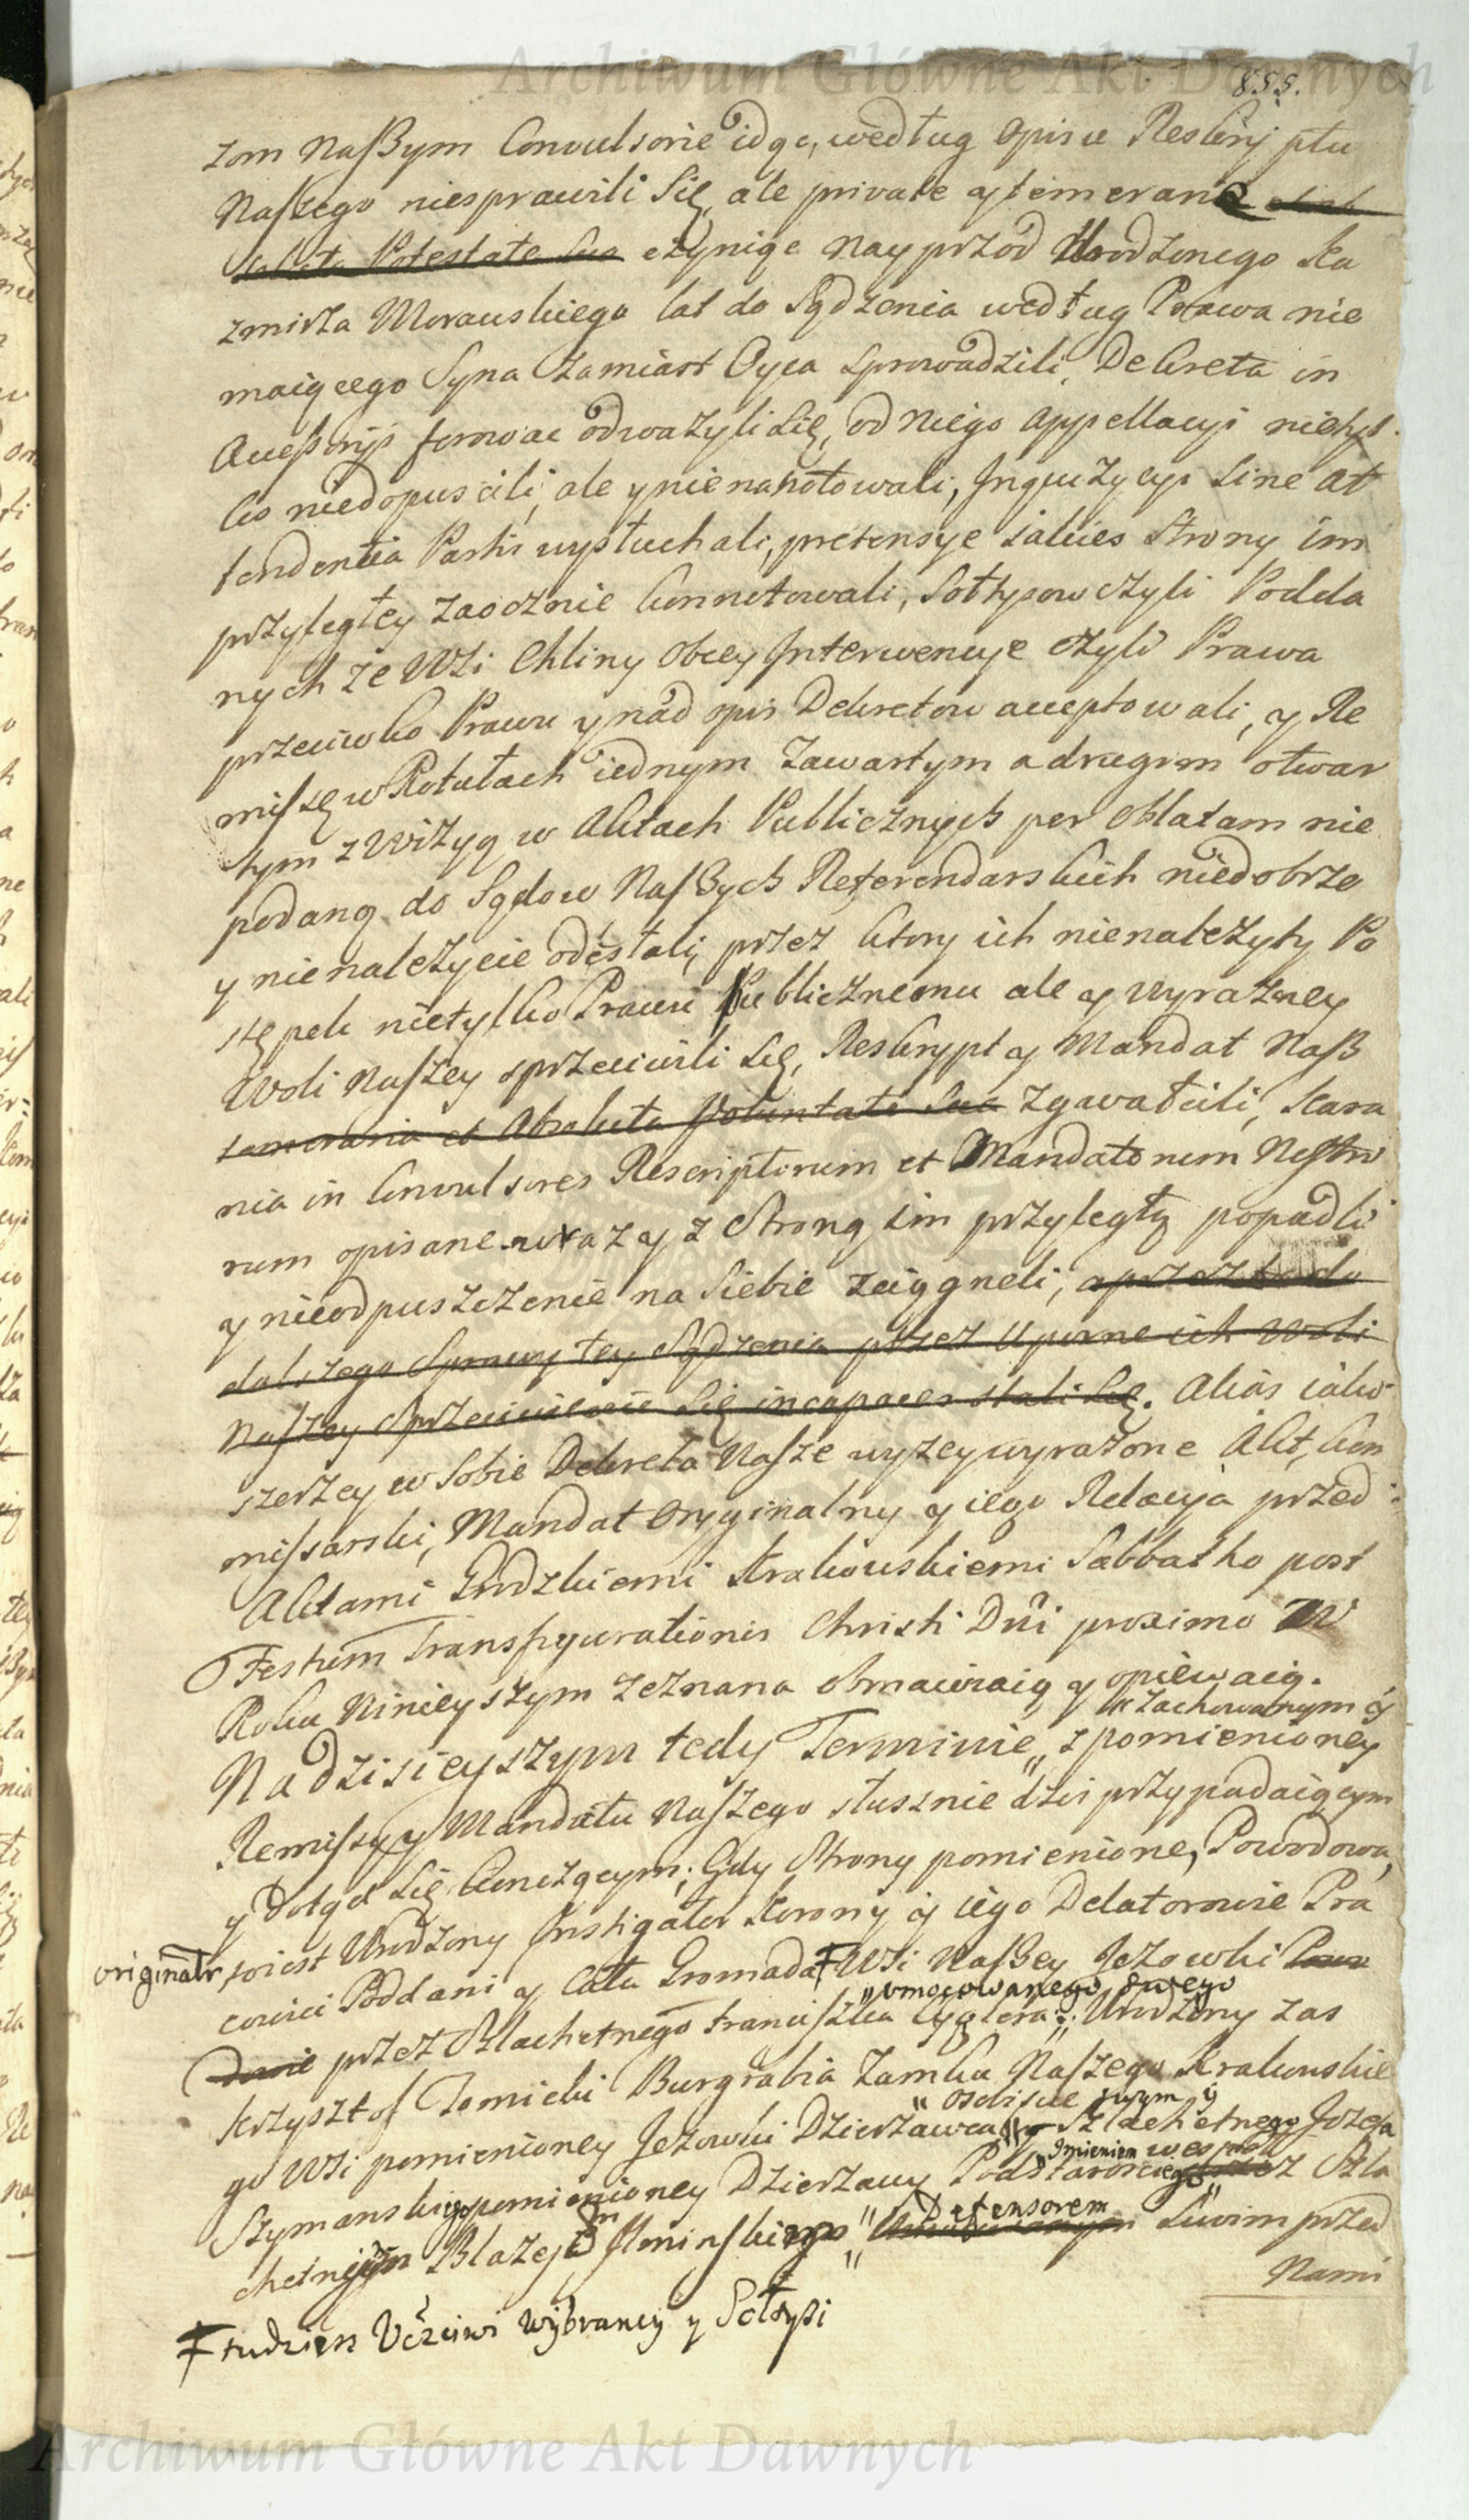 Archiwum Główne Akt Dawnych
855.
zom naszym Convulsorie idąc, według opisu Reskryptu
Naszego niesprawili Się, ale private y temerarie
Absoluta Potestate Sua czyniąc nayprzod Urodzonego Ka
zmirza Morawskiego lat do Sądzenia według Prawa nie
maiącego Syna Zamiast Oyca Sprowadzili, Dekreta in
Accessoryis ferować odważyli Się, od niego appellacyi nietyl
ko niedopuscili, ale y nienanotowali, Inquizycyi Sine at
tendentia Partis wysłuchali, pretensye iakies Strony im
przyległey zaocznie konnotowali, Sołtysow czyli Podda
nych ze Wsi Chliny obcey Interwencye czyli Prawa
przeciwko Prawu y nad opis Dekretow acceptowali, y Re
missę w Rotułach iednym zawartym a drugim otwar
tym z Wizyą w Aktach Publicznych per Oblatam nie
podaną do Sądow Naszych Referendarskich niedobrze
y nienależycie odesłali, przez ktory ich nienależyty Po
stępek nietylko Prawu Publicznemu ale y wyrazney
Woli Naszey sprzeciwili Się, Reskrypt y Mandat Nasz
temeraria et Absoluta Voluntate Sua zgwałcili, kara
nia in Convulsores Rescriptorum et Mandatorum Nostro
rum opisane wraz y z Stroną im przyległą popadli
y nieodpuszczenie na Siebie zciągneli, a przez to do
dalszego Sprawy tey Sądzenia przez uporne ich Woli
Naszey Sprzeciwienie Się incapaces stali Się. Alias iako
szerzey w Sobie Dekreta Nasze wyzey wyrażone Akt, kom
missarski, Mandat Oryginalny y iego Relacya przed
Aktami Grodzkiemi Krakowskiemi Sabbatho post
Festum Transfigurationis Christi Dni proximo w
Roku Ninieyszym zeznana obmawiaią y opiewaią.
zachowanym y
Na dzisieyszym tedy Terminie z pomienioney
Remissy y Mandatu Naszego słusznie dzis przypadaiącym
y dotąd Się konczącym; Gdy Strony pomienione, Powodowa,
originalr ioiest Urodzony Instigator Korony y iego Delatorowie Pra
cowici Poddani y Cała Gromada Ŧ Wsi Naszey Jezowki
umocowanego swego
przez Szlachetnego Franciszka Cyglera; Urodzony zas
Krzysztof Tomicki Burgrabia Zamku Naszego Krakowskie
osobiscie swym y
go Wsi pomienioney Jezowki Dzierżawca y Szlachetnego Jozefa
Imieniem wespoł
Szymanskiego pomienioney Dzierżawy Podstarosciego przez Szla
Defensorem
chetnym Błazeiem Słominskim Swoim przed
Nami
Ŧ tudziesz Uczciwi Wybrancy y Sołtysi
Archiwum Główne Akt Dawnych